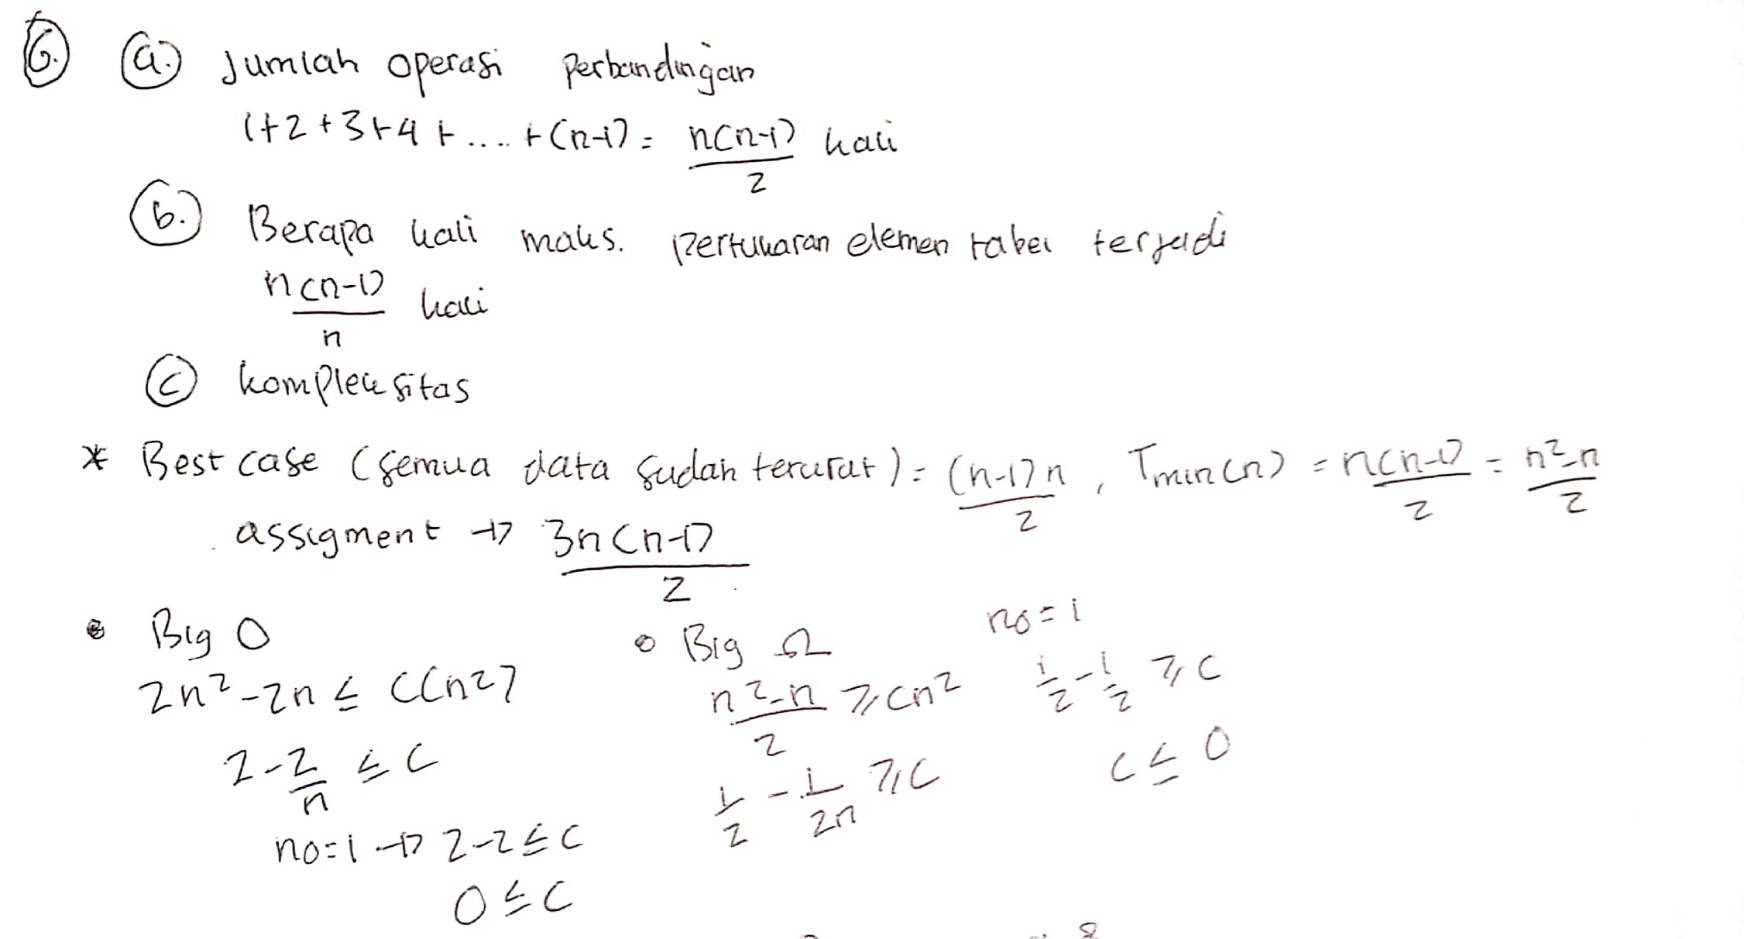 6. a. Jumlah operasi Perbandingan
1+2+3+4+....+(n-1) = n(n-1)/2 kali
b. Berapa kali maks. Pertukaran elemen tabel terjadi
n(n-1)/n kali
c Kompleksitas
* Best case (semua data sudah terurut) = (n-1)n/2, Tmin(n) = n(n-1)/2 = n²-n/2
assigment → 3n(n-1)/2
• Big O
2n²-2n ≤ C(n2)
2-2/n ≤ C
n0=1 → 2-2 ≤ C
0 ≤ C
• Big Ω
n²-n/2 ≥ Cn²
1/2 - 1/2n ≥ C
n0=1
1/2 - 1/2 ≥ C
C ≤ 0